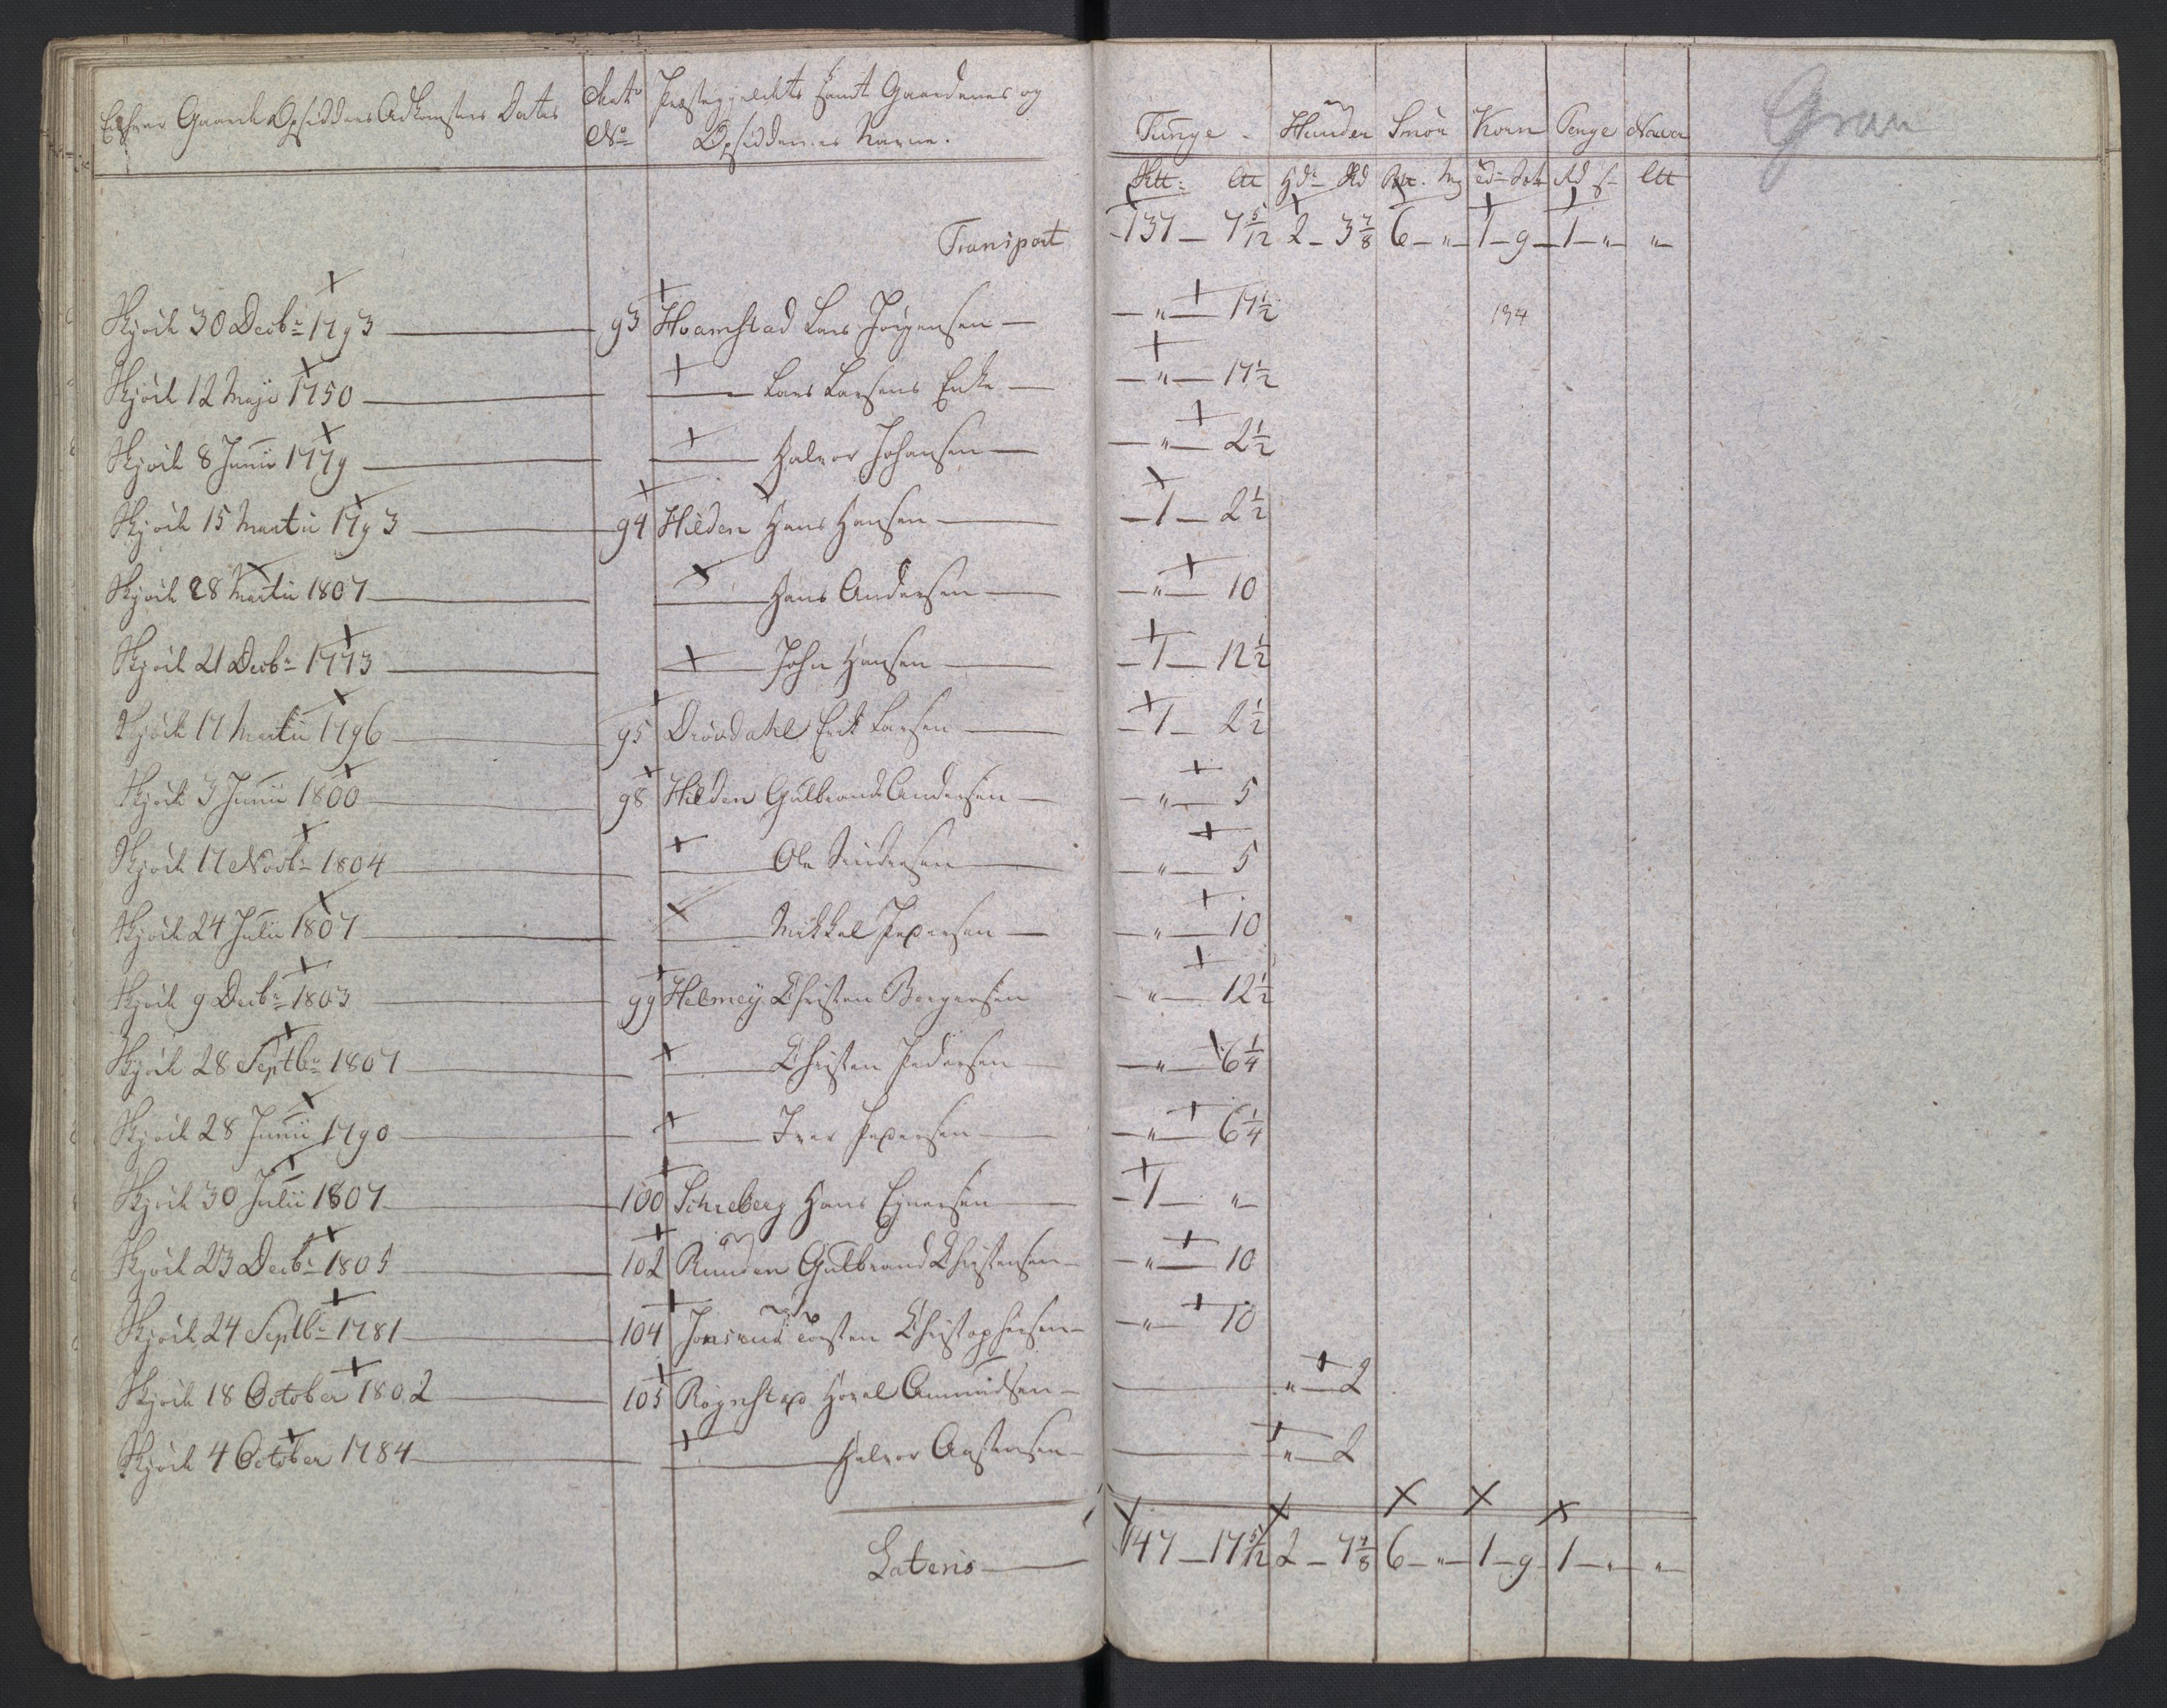 Enhver Gaards Opsidderes Adkomsters Datis | Matr No | Præstegjeldets samt Gaardenes og Opsiddernes Navne. | Tunge | Huuder | Smör | Korn | Penge | Gran
Transport 137 - 7 5/12 | 2 - 3 7/8 | 6 - " - | 1 - 9 - | 1 - " - | "
Skjöde 30 Decbr 1793 | 93 | Hvamstad Lars Jörgensen | " 17 1/2 | 134
Skjöde 12 Maji 1750 | Lars Larsens Enke | " 17 1/2
Skjöde 8 Junii 1779 | Halvor Johansen | " 2 1/2
Skjöde 15 Martii 1793 | 94 | Hilden Hans Hansen | 1 - 2 1/2
Skjöde 28 Martii 1807 | Hans Andersen | " 10
Skjöde 21 Decbr 1773 | John Hansen | 1 - 12 1/2
Skjöde 17 Martii 1796 | 95 | Drövdahl Erik Larsen | 1 - 2 1/2
Skjöde 3 Junii 1800 | 98 | Hilden Gulbrand Andersen | " 5
Skjöde 17 Novbr 1804 | Ole | " 5
Skjöde 24 Julii 1807 | Mikkel Pedersen | " 10
Skjöde 9 Decbr 1803 | 99 | Helmey Christen Borgersen | " 12 1/2
Skjöde 28 Septbr 1807 | Christen Pedersen | " 6 1/4
Skjöde 28 Junii 1790 | Iver Pedersen | " 6 1/4
Skjöde 30 Julii 1807 | 100 | Schreberg Hans Ejnersen | 1 - "
Skjöde 23 Decbr 1805 | 102 | Ruuden Gulbrand Christensen | " 10
Skjöde 24 Septbr 1781 | 104 | Torsten Christophersen | " 10
Skjöde 18 October 1802 | 105 | Rognstad Hovel Amundsen | " 2
Skjöde 4 October 1784 | Halvor Aastensen | " 2
Lateris 147 - 17 5/12 | 2 - 7 7/8 | 6 - " - | 1 - 9 - | 1 - " - | "